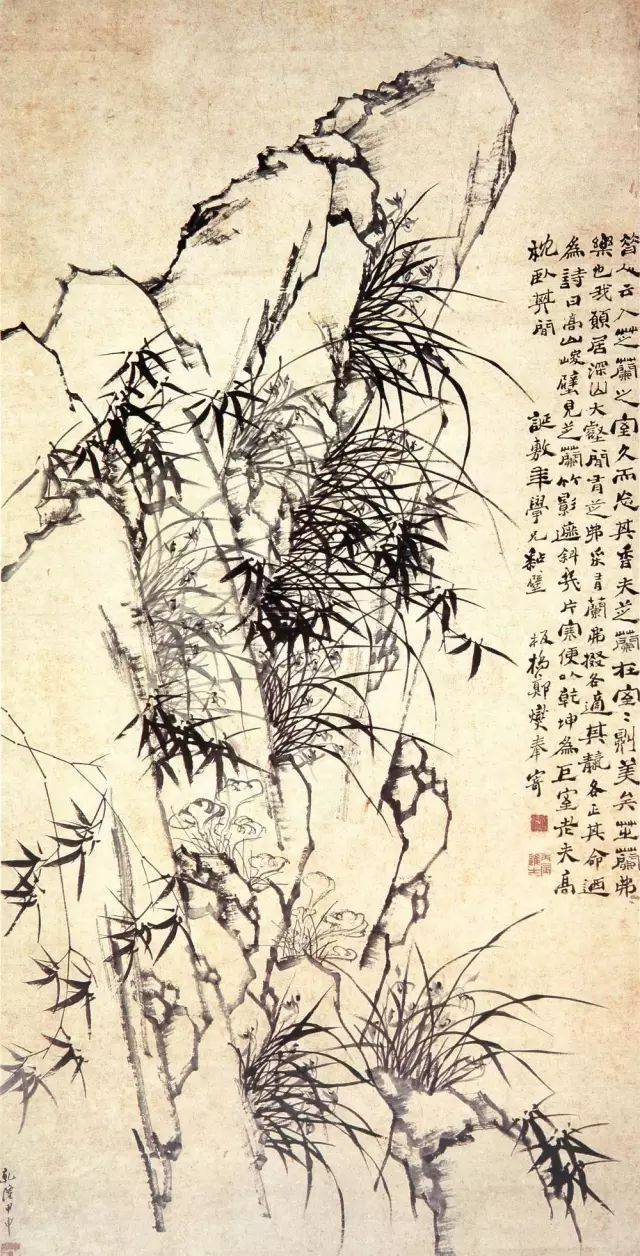 昔人云入芝蘭之室久而忘其香夫芝蘭在室〻則美矣芝蘭弗
樂也我願居深山大壑間有芝弗采有蘭弗掇各適其各正其命迺
為詩曰高山峻壁見芝蘭竹影遮斜幾片寒便以乾坤為巨室老夫高
枕臥其間 誕敷年學兄黏壁 板橋鄭燮奉寄
丙辰進士
乾隆甲申